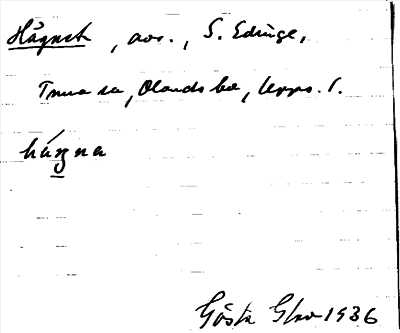 Hägnet, avs., S. Edinge,
Tensta sn, Olands hd, Upps. l.
hägna
Gösta 1936